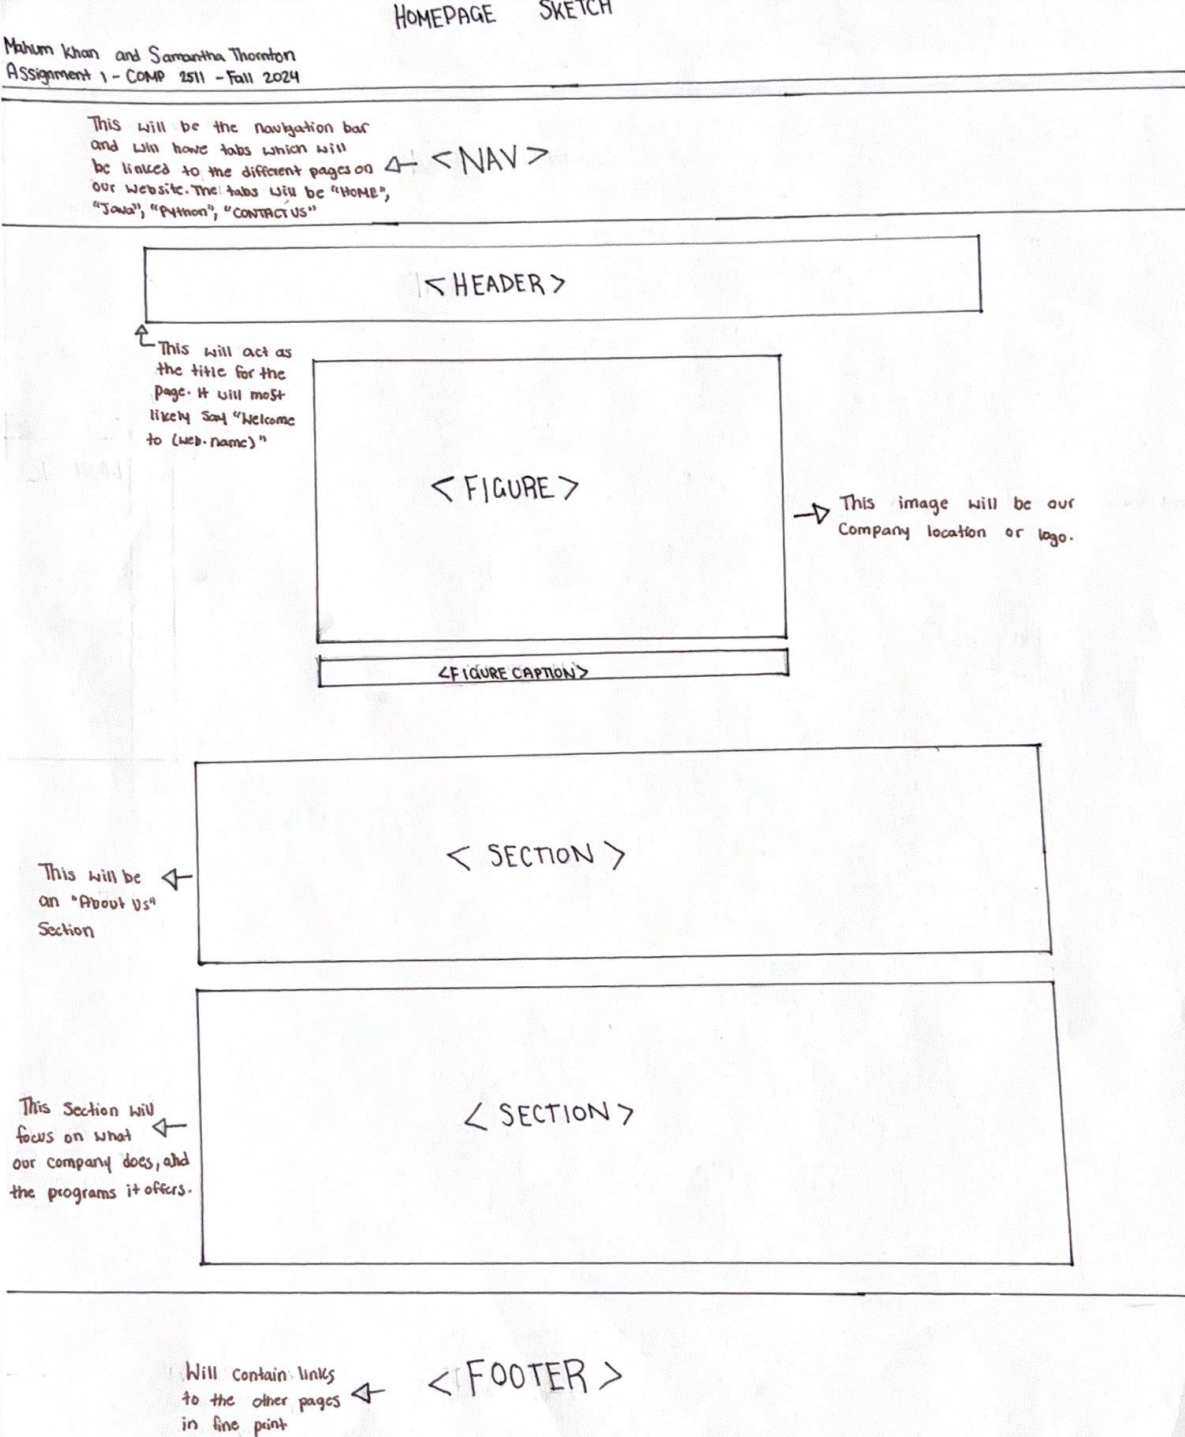 HOMEPAGE SKETCH
Mahum Khan and Samantha Thornton
Assignment 1 - COMP 2511 - Fall 2024
This will be the navigation bar
and will have tabs which will
be linked to the different pages on
our website. The tabs will be "HOME",
"Java", "Python", "CONTACT US"
<NAV>
<HEADER>
This will act as
the title for the
page. It will most
likely say "Welcome
to (web.name)"
<FIGURE>
This image will be our
Company location or logo.
<FIGURE CAPTION>
<SECTION>
This will be
an "About Us"
Section
<SECTION>
This Section will
focus on what
our company does, and
the programs it offers.
Will contain links
to the other pages
in fine print
<FOOTER>